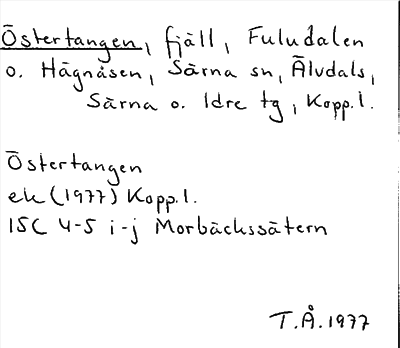 Östertangen, fjäll, Fuludalen
o. Hägnåsen, Särna sn, Älvdals,
Särna o. Idre tg, Kopp.l.
Östertangen
ek (1977) Kopp.l.
15C 4-5 i-j Morbäckssätern
T.Å. 1977